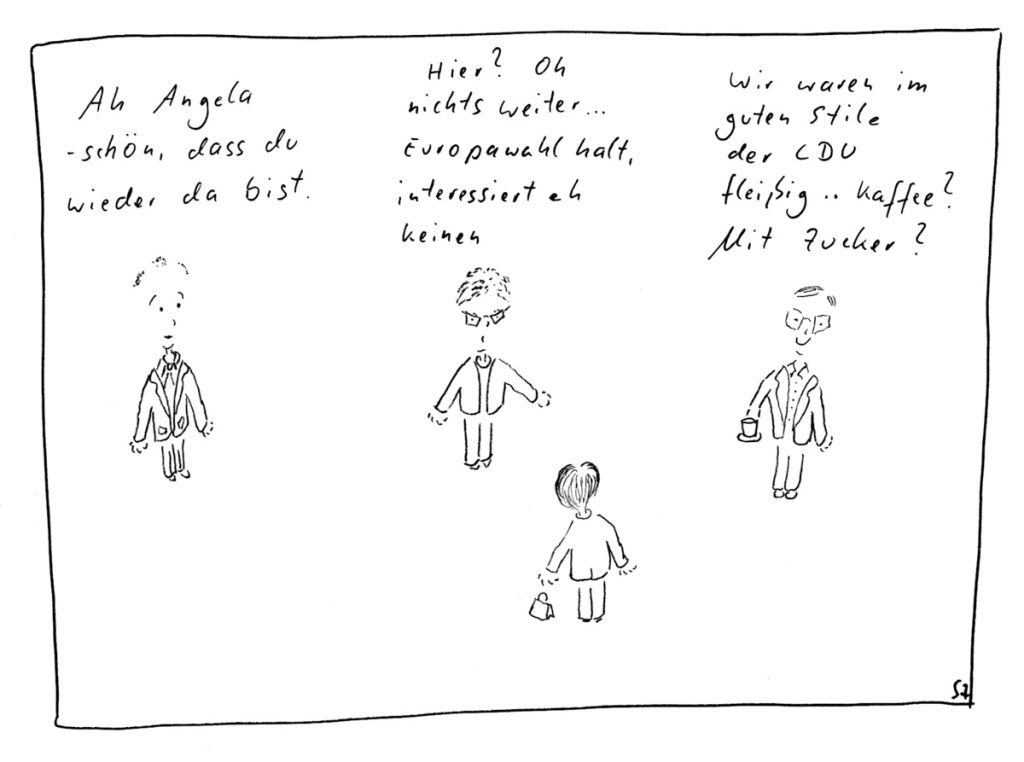 Ah Angela
- schön, dass du
wieder da bist.
Hier? Oh
nichts weiter...
Europawahl halt,
interessiert eh
keinen
Wir waren im
guten Stile
der CDU
fleißig .. Kaffee?
Mit Zucker?